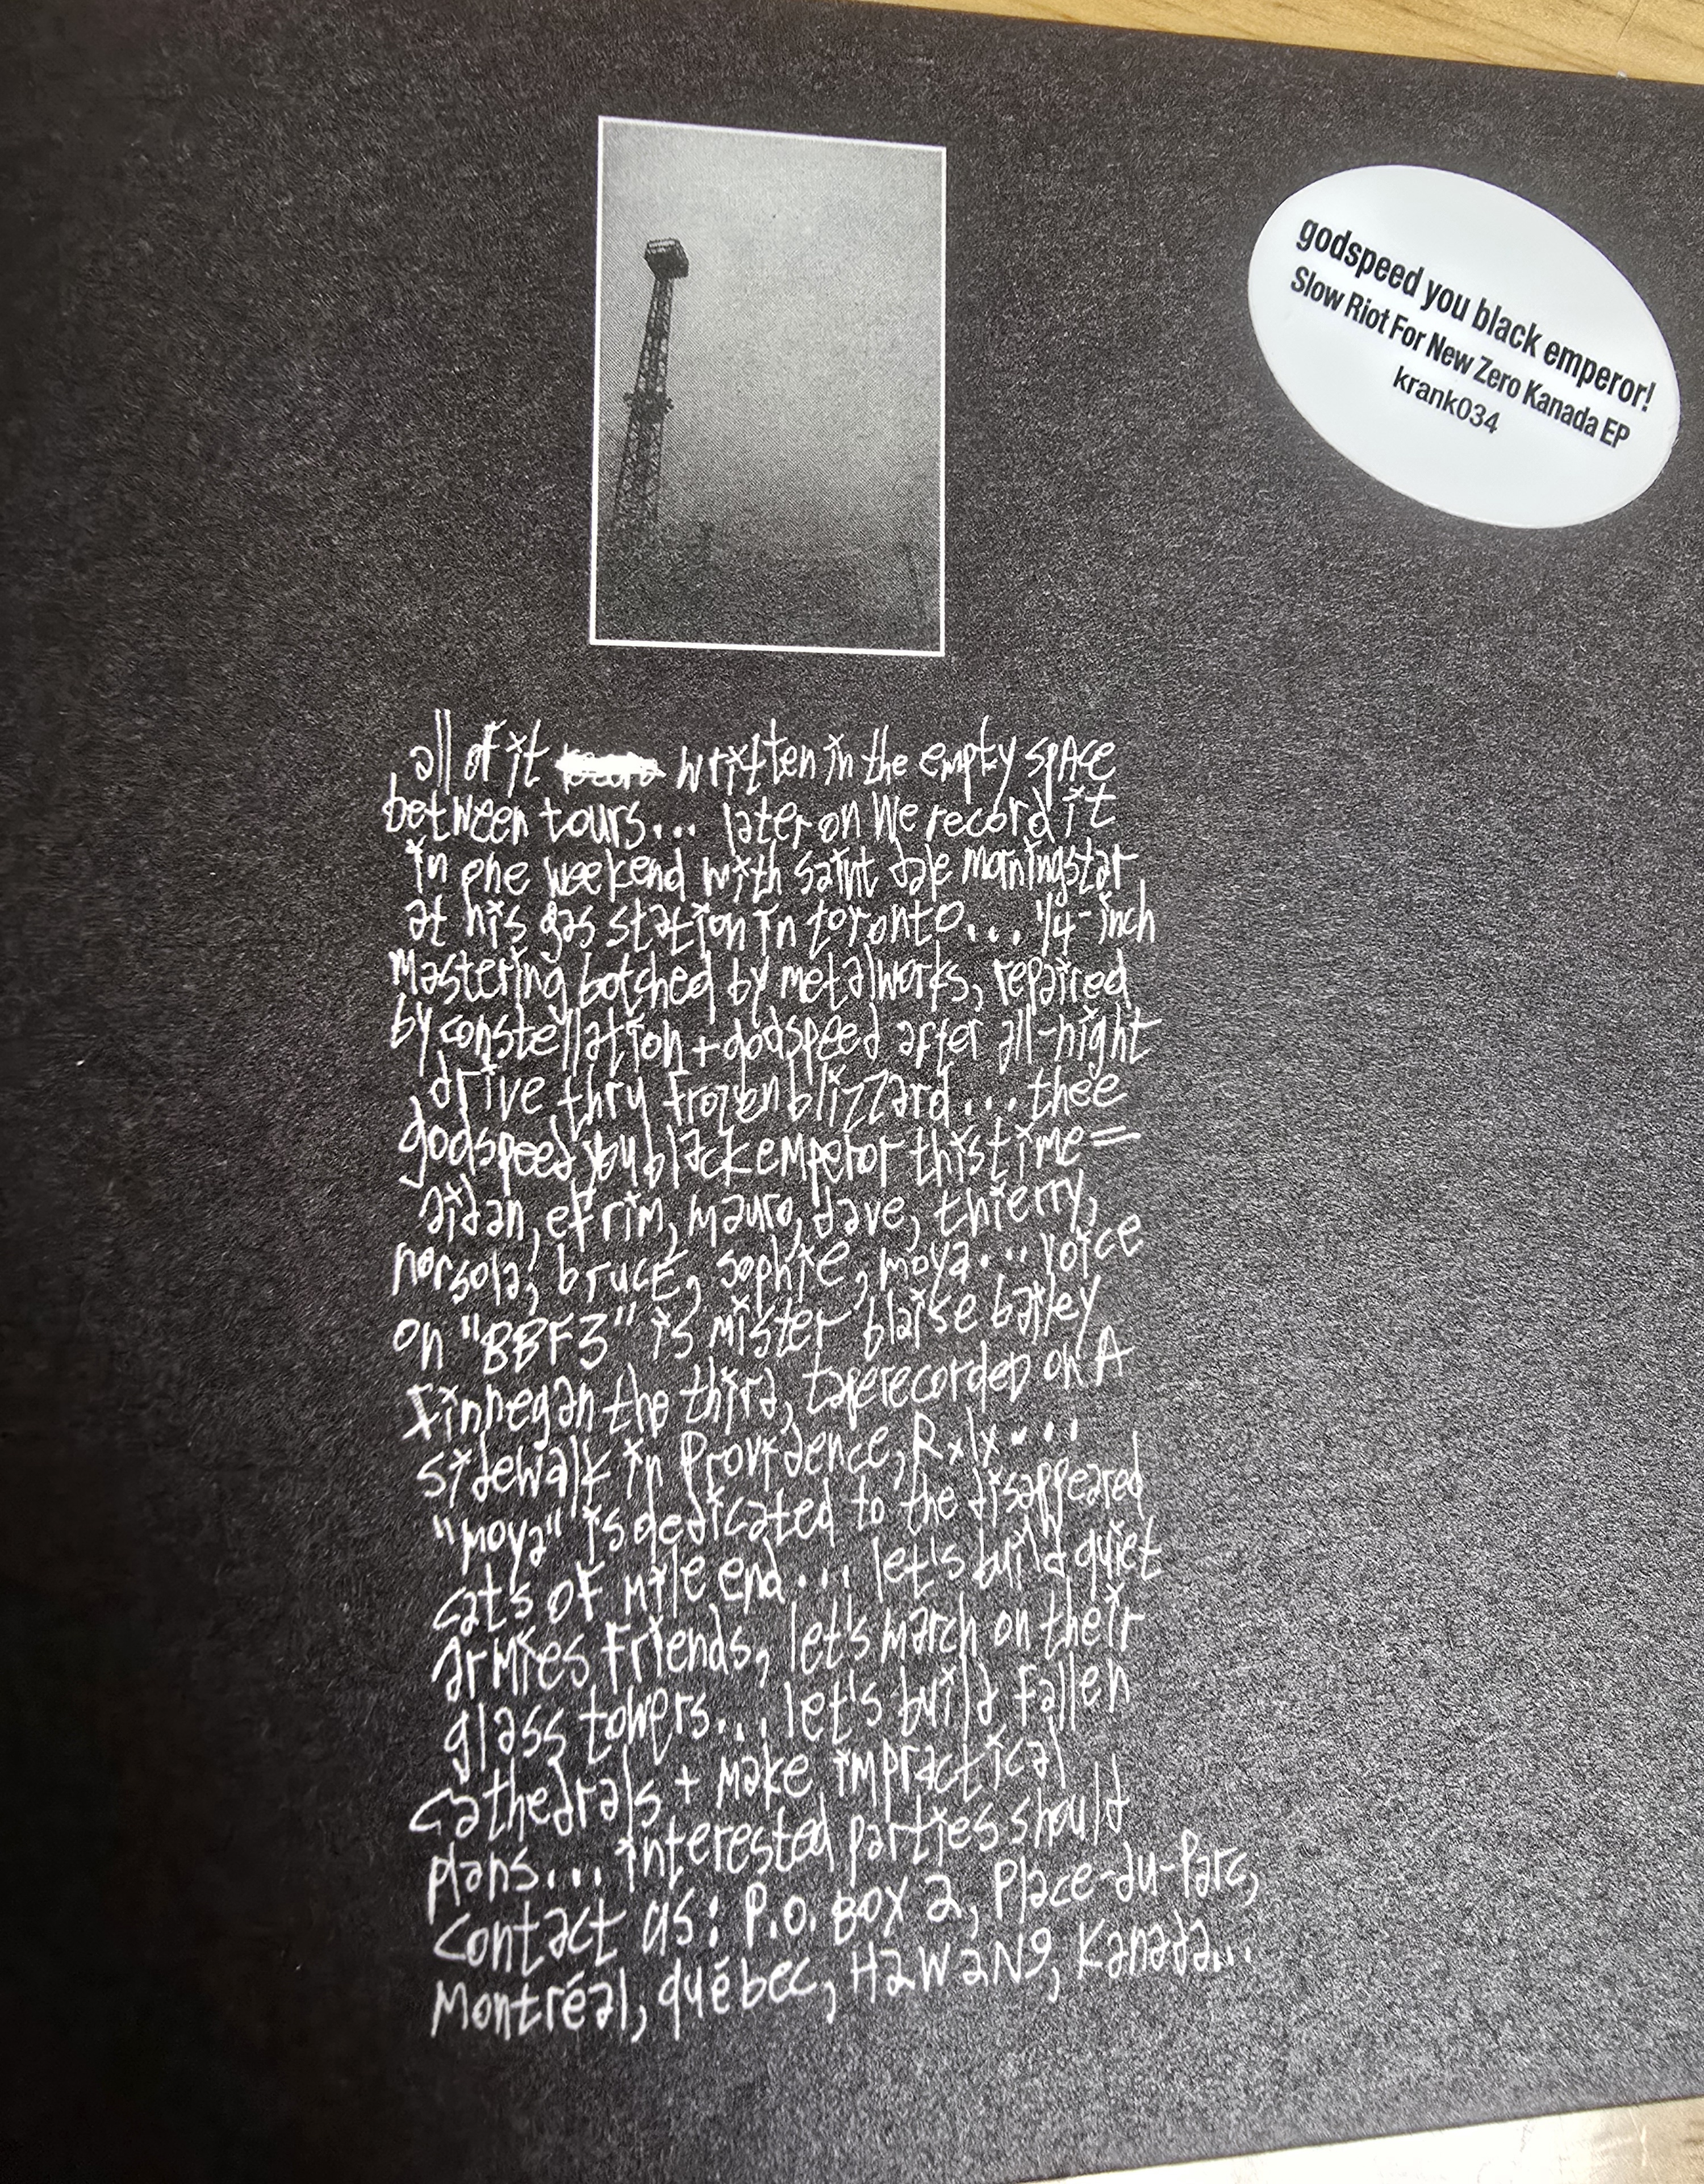 godspeed you black emperor!
Slow Riot For New Zero Kanada EP
krank034
all of it written in the empty spAce
between tours... later on We record it
in one weekend with saint dale morningstar
at his gas station in toronto... 1/4-inch
Mastering botched by metalworks, repaired
by constellation + godspeed after all-night
drive thru frozen blizzard... thee
godspeed you black emperor this time =
aidan, efrim, mauro, dave, thierry,
norsola, brucE, sophie, moya... voice
on "BBF3" is mister blaise bailey
finnegan the third, taperecorded on A
sidewalk in Providence, RxIx....
"moya" is dedicated to the disappeared
cats of mile end... let's build quiet
armies friends, let's march on their
glass towers... let's build fallen
cathedrals + make impractical
plans... interested parties should
contact us: P.O. BOX 2, Place-du-Parc,
Montréal, québec, H2W2N9, Kanada...